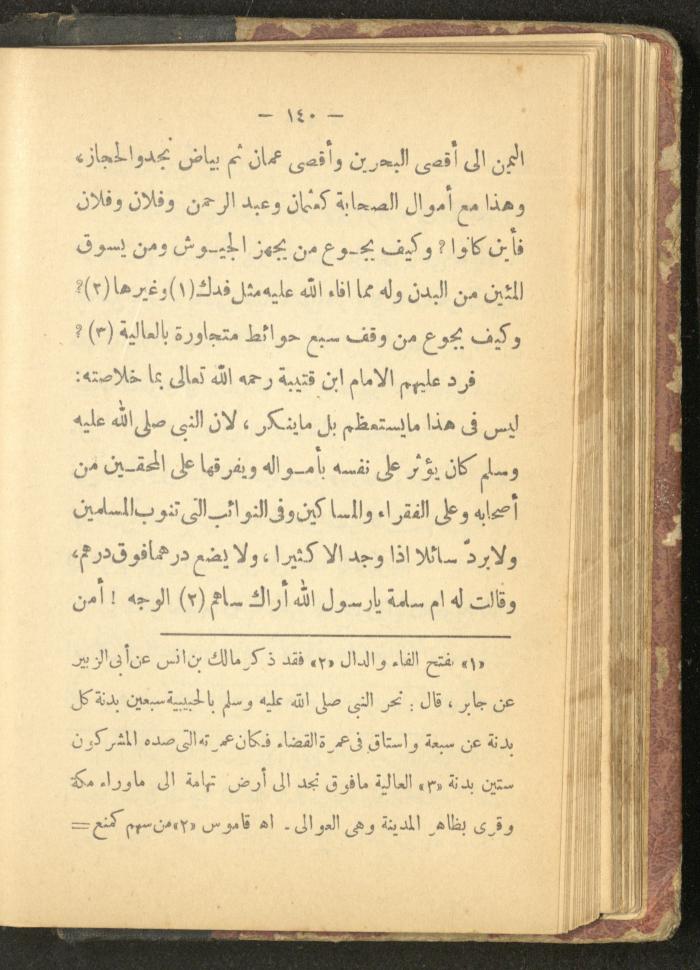 — ١٤٠ —
اليمن الى أقصى البحرين وأقصى عمان ثم بياض نجد والحجاز،
وهذا مع أموال الصحابة كعثمان وعبد الرحمن وفلان وفلان
فأين كانوا ؟ وكيف يجوع من يجهز الجيوش ومن يسوق
المئين من البدن وله مما افاء الله عليه مثل فدك (١) وغيرها (٢)؟
وكيف يجوع من وقف سبع حوائط متجاورة بالعالية (٣) ؟
فرد عليهم الامام ابن قتيبة رحمه الله تعالى بما خلاصته:
ليس فى هذا ما يستعظم بل ما ينكر ، لان النبى صلى الله عليه
وسلم كان يؤثر على نفسه بأمواله ويفرقها على المحقين من
أصحابه وعلى الفقراء والمساكين وفى النوائب التى تنوب المسلمين
ولا يردّ سائلا اذا وجد الا كثيرا ، ولا يضع درهما فوق درهم،
وقالت له ام سلمة يارسول الله أراك ساهم (٢) الوجه ! أمن
«١» بفتح الفاء والدال «٢» فقد ذكر مالك بن انس عن أبى الزبير
عن جابر ، قال : نحر النبى صلى الله عليه وسلم بالحبيبية سبعين بدنة كل
بدنة عن سبعة واستاق فى عمرة القضاء فكان عمرته التى صده المشركون
ستين بدنة «٣» العالية مافوق نجد الى أرض تهامة الى ماوراء مكة
وقرى بظاهر المدينة وهى العوالى ـ اه قاموس «٢» من سهم كمنع =